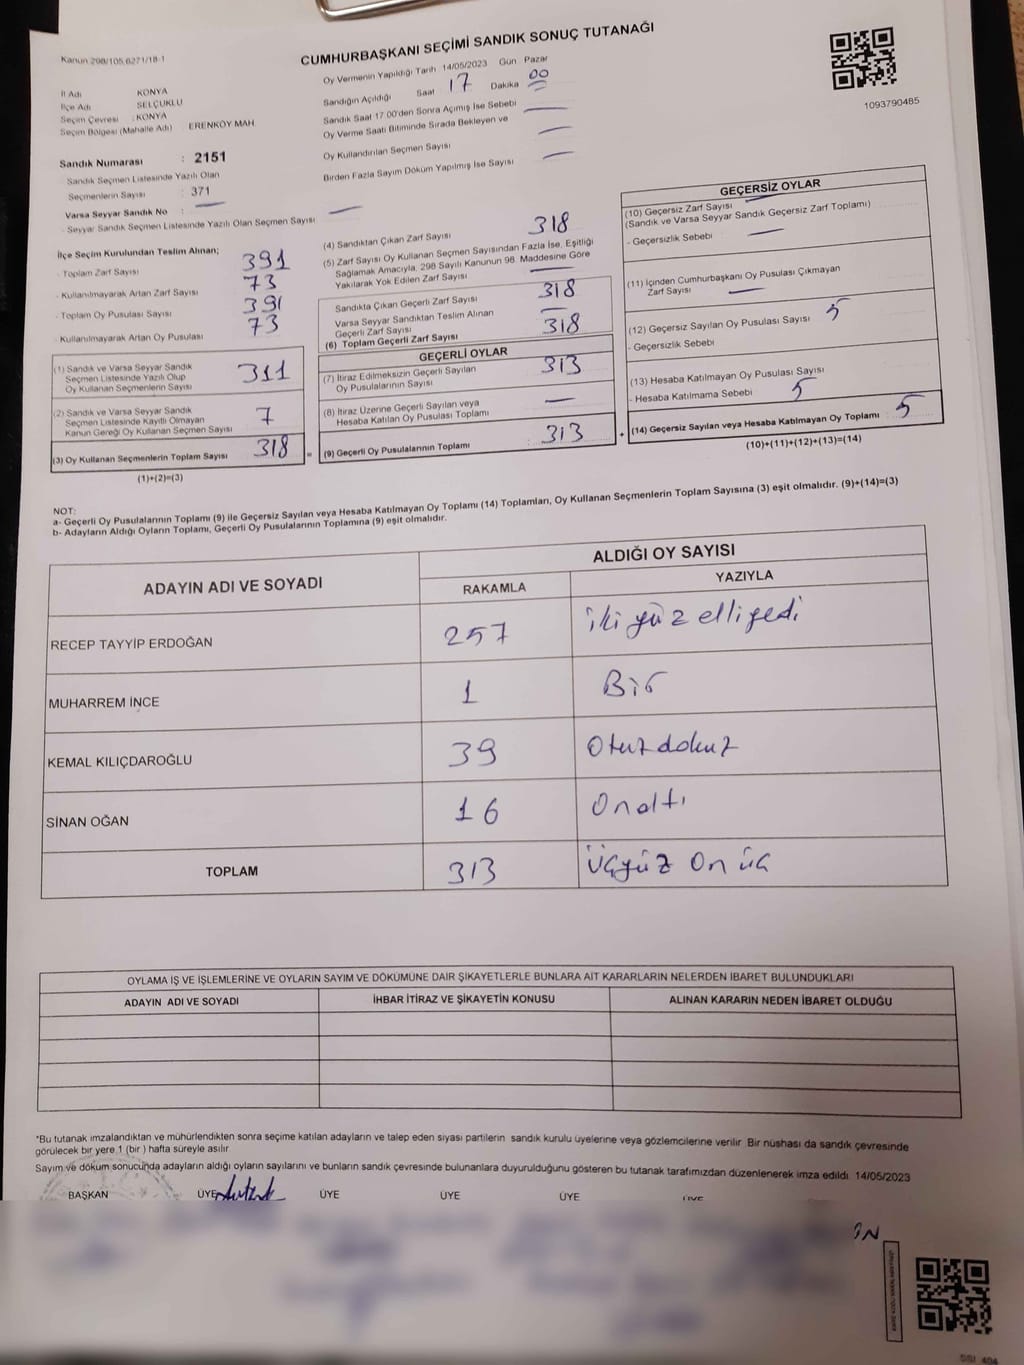 Kanun 298/105,6271/18-1
CUMHURBAŞKANI SEÇİMİ SANDIK SONUÇ TUTANAĞI
1093790485
İl Adı KONYA
İlçe Adı SELÇUKLU
Seçim Çevresi : KONYA
Seçim Bölgesi (Mahalle Adı) ERENKÖY MAH.
Sandık Numarası : 2151
Sandık Seçmen Listesinde Yazılı Olan
Seçmenlerin Sayısı : 371
Varsa Seyyar Sandık No : —
- Seyyar Sandık Seçmen Listesinde Yazılı Olan Seçmen Sayısı —
Oy Vermenin Yapıldığı Tarih 14/05/2023 Gün Pazar
Sandığın Açıldığı Saat 17 Dakika 00
Sandık Saat 17.00'den Sonra Açımış İse Sebebi —
Oy Verme Saati Bitiminde Sırada Bekleyen ve
Oy Kullandırılan Seçmen Sayısı —
Birden Fazla Sayım Döküm Yapılmış İse Sayısı —
İlçe Seçim Kurulundan Teslim Alınan;
- Toplam Zarf Sayısı 391
- Kullanılmayarak Artan Zarf Sayısı 73
- Toplam Oy Pusulası Sayısı 391
- Kullanılmayarak Artan Oy Pusulası 73
(1) Sandık ve Varsa Seyyar Sandık
Seçmen Listesinde Yazılı Olup
Oy Kullanan Seçmenlerin Sayısı 311
(2) Sandık ve Varsa Seyyar Sandık
Seçmen Listesinde Kayıtlı Olmayan
Kanun Gereği Oy Kullanan Seçmen Sayısı 7
(3) Oy Kullanan Seçmenlerin Toplam Sayısı 318
(1)+(2)=(3)
(4) Sandıktan Çıkan Zarf Sayısı 318
(5) Zarf Sayısı Oy Kullanan Seçmen Sayısından Fazla İse, Eşitliği
Sağlamak Amacıyla, 298 Sayılı Kanunun 98. Maddesine Göre
Yakılarak Yok Edilen Zarf Sayısı —
Sandıkta Çıkan Geçerli Zarf Sayısı 318
Varsa Seyyar Sandıktan Teslim Alınan
Geçerli Zarf Sayısı —
(6) Toplam Geçerli Zarf Sayısı 318
GEÇERLİ OYLAR
(7) İtiraz Edilmeksizin Geçerli Sayılan
Oy Pusulalarının Sayısı 313
(8) İtiraz Üzerine Geçerli Sayılan veya
Hesaba Katılan Oy Pusulası Toplamı —
(9) Geçerli Oy Pusulalarının Toplamı : 313
GEÇERSİZ OYLAR
(10) Geçersiz Zarf Sayısı —
(Sandık ve Varsa Seyyar Sandık Geçersiz Zarf Toplamı)
- Geçersizlik Sebebi —
(11) İçinden Cumhurbaşkanı Oy Pusulası Çıkmayan
Zarf Sayısı —
(12) Geçersiz Sayılan Oy Pusulası Sayısı 5
- Geçersizlik Sebebi
(13) Hesaba Katılmayan Oy Pusulası Sayısı
- Hesaba Katılmama Sebebi 5
(14) Geçersiz Sayılan veya Hesaba Katılmayan Oy Toplamı 5
(10)+(11)+(12)+(13)=(14)
NOT:
a- Geçerli Oy Pusulalarının Toplamı (9) ile Geçersiz Sayılan veya Hesaba Katılmayan Oy Toplamı (14) Toplamları, Oy Kullanan Seçmenlerin Toplam Sayısına (3) eşit olmalıdır. (9)+(14)=(3)
b- Adayların Aldığı Oyların Toplamı, Geçerli Oy Pusulalarının Toplamına (9) eşit olmalıdır.
ADAYIN ADI VE SOYADI ALDIĞI OY SAYISI
RAKAMLA YAZIYLA
RECEP TAYYİP ERDOĞAN 257 iki yüz elli yedi
MUHARREM İNCE 1 Bir
KEMAL KILIÇDAROĞLU 39 Otuzdokuz
SİNAN OĞAN 16 Onaltı
TOPLAM 313 Üçyüz On üç
OYLAMA İŞ VE İŞLEMLERINE VE OYLARIN SAYIM VE DÖKÜMÜNE DAİR ŞİKAYETLERLE BUNLARA AİT KARARLARIN NELERDEN İBARET BULUNDUKLARI
ADAYIN ADI VE SOYADI İHBAR İTİRAZ VE ŞİKAYETİN KONUSU ALINAN KARARIN NEDEN İBARET OLDUĞU
*Bu tutanak imzalandıktan ve mühürlendikten sonra seçime katılan adayların ve talep eden siyasi partilerin sandık kurulu üyelerine veya gözlemcilerine verilir. Bir nüshası da sandık çevresinde
görülecek bir yere 1 (bir) hafta süreyle asılır.
Sayım ve döküm sonucunda adayların aldığı oyların sayılarını ve bunların sandık çevresinde bulunanlara duyurulduğunu gösteren bu tutanak tarafımızdan düzenlenerek imza edildi. 14/05/2023
BAŞKAN ÜYE ÜYE ÜYE ÜYE ÜYE